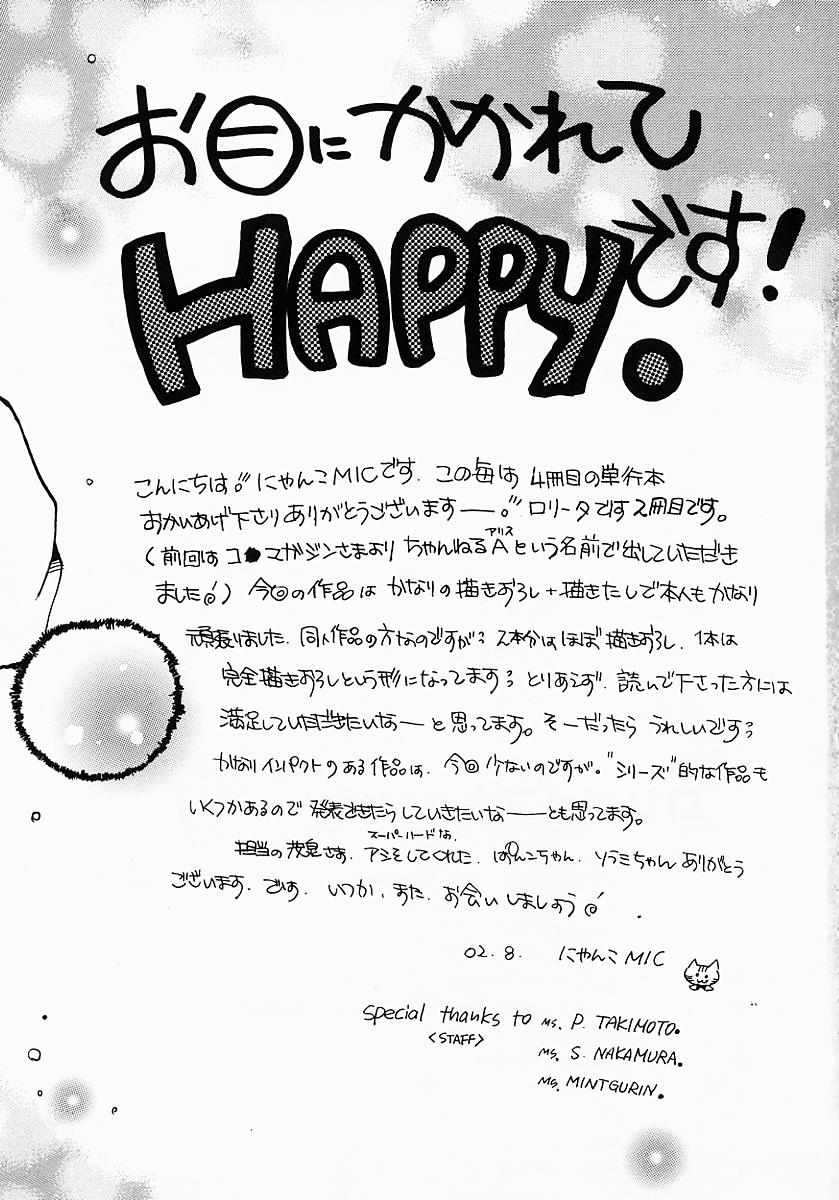 お目にかかれて
HAPPYです!
こんにちは。にゃんこMICです. この毎は 4冊目の単行本
おかいあげ下さりありがとうございます――。ロリータです2冊目です。
(前回は コ●マガジンさまより ちゃんねるAという名前で出していただき
アリス
ました) 今回の作品は かなりの描きおろし+描きたしで本人もかなり
頑張りました. 同人作品の方なのですが; 2本分はほぼ描きおろし. 1本は
完全描きおろしという形になってます; とりあえず. 読んで下さった方には
満足していただきたいなーと思ってます。そーだったら うれしいです;
かなりインパクトのある作品は. 今回少ないのですが. "シリーズ"的な作品も
いくつかあるので 発表できたらしていきたいな――とも思ってます。
スーパーハードな.
担当の さま. アシをしてくれた. ぱんこちゃん. ソラミちゃん ありがとう
ございます. です. いつか. また. お会いしましょう
02.8. にゃんこMIC
special thanks to Ms. P. TAKIMOTO.
<STAFF>
Ms. S. NAKAMURA.
Ms. MINTGURIN.